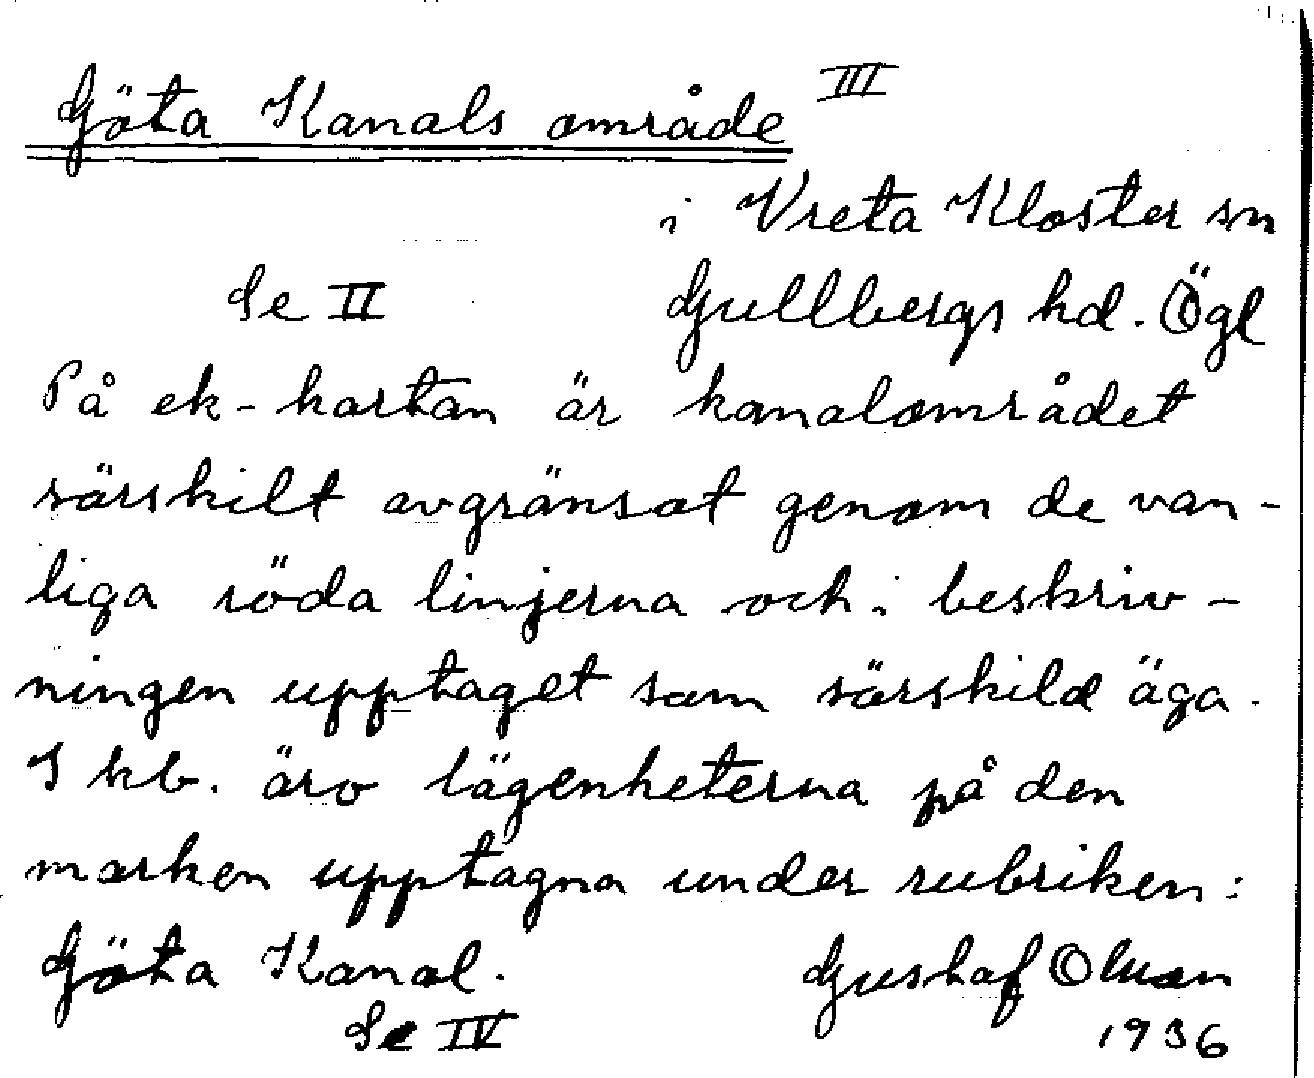 Göta Kanals område III
i Vreta Kloster sn
Se II Gullbergs hd. Ögl
På ek-kartan är kanalområdet
särskilt avgränsat genom de van-
liga röda linjerna och i beskriv-
ningen upptaget som särskild äga.
I kb. äro lägenheterna på den
marken upptagna under rubriken:
Göta Kanal. Gustaf
Se IV 1936